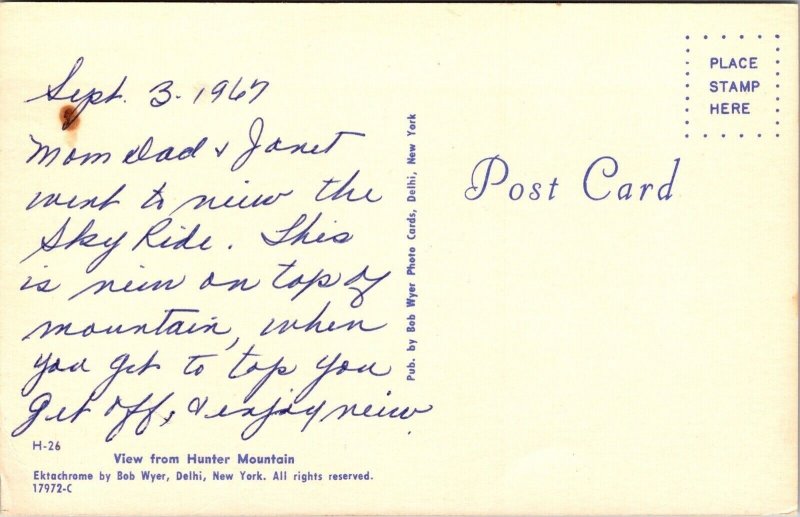 Sept. 3. 1967
Mom Dad & Janet
went to view the
Sky Ride. This
is view on top of
mountain, when
you get to top you
get off, & enjoy view.
H-26
View from Hunter Mountain
Ektachrome by Bob Wyer, Delhi, New York. All rights reserved.
17972-C
Pub. by Bob Wyer Photo Cards, Delhi, New York
Post Card
PLACE
STAMP
HERE